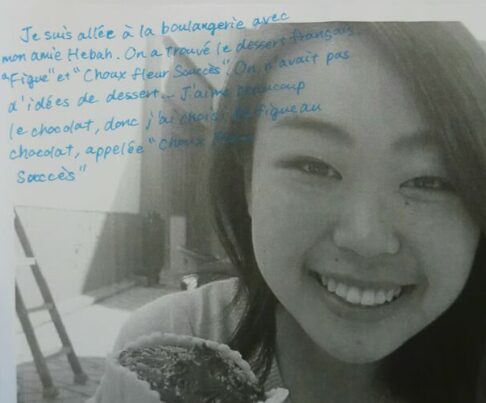 Je suis allée à la boulangerie avec
mon amie Hebah. On a trouvé le dessert français..
"Figue" et "Choux fleur Succès". On n'avait pas
d'idées de dessert... J'aime beaucoup
le chocolat, donc j'ai choisi figue au
chocolat, appelée "Choux
Succès"